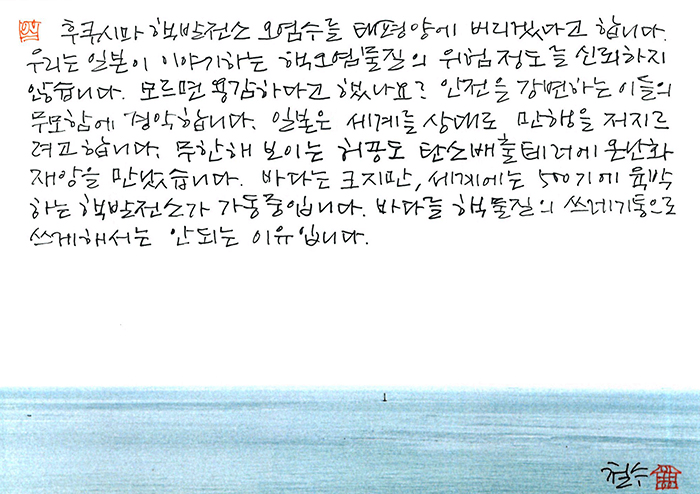 후쿠시마 핵발전소 오염수를 태평양에 버리겠다고 합니다.
우리는 일본이 이야기하는 핵오염물질의 위험정도를 신뢰하지
않습니다. 모르면 용감하다고 했나요? 안전을 강변하는 이들의
무모함에 경악합니다. 일본은 세계를 상대로 만행을 저지르
려고합니다. 무한해 보이는 허공도 탄소배출테러에 온난화
재앙을 만났습니다. 바다는 크지만, 세계에는 500기에 육박
하는 핵발전소가 가동중입니다. 바다를 핵물질의 쓰레기통으로
쓰게해서는 안되는 이유입니다.
철수